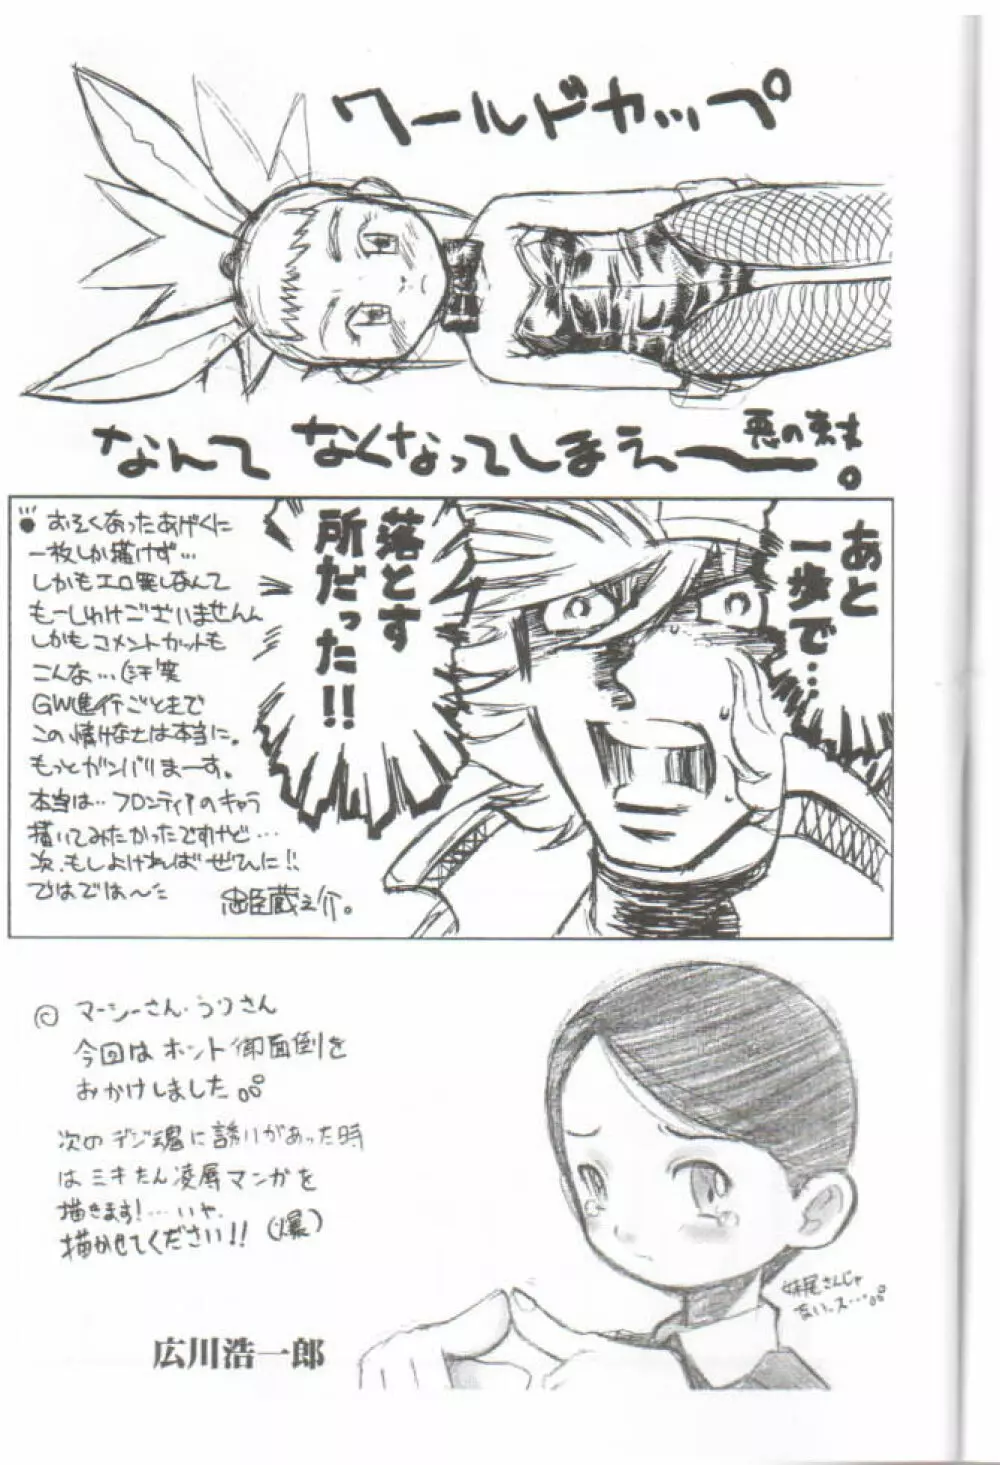 ワールドカップ
なんて なくなってしまえー。
悪の
おそくなったあげくに
一枚しか描けず…
しかもエロ無しなんて
もーしわけございませんん
しかもコメントカットも
こんな…(汗)
GW進行ごときで
この情けなさは本当に。
もっとガンバリまーす。
本当は…フロンティアのキャラ
描いてみたかったですけど…
次、もしよければぜひに!!
ではでは〜
忠臣蔵之介。
あと
一歩で…
落とす
所だった!!
マーシーさん・うりさん
今回はホント御面倒を
おかけしました
次のデジ魂に誘いがあった時
は ミキたん凌辱マンガを
描きます!…いや、
描かせてください!!(爆)
妹尾さんじゃ
ないっス…
広川浩一郎